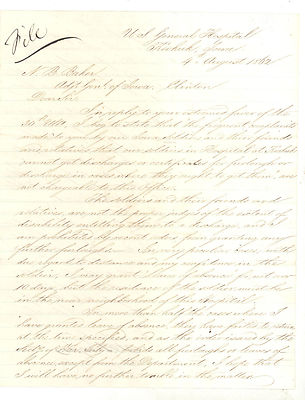 File
U.S. General Hospital
Keokuk, Iowa
4th August 1862
N. B. Baker
Adjt. Genl. of Iowa, Clinton
Dear Sir
In reply to your esteemed favor of the
30th Ulto. I have to state that the frequent
made to you by our Iowa soldiers and their friends
and relatives that our soldiers in Hospital at Keokuk
cannot get discharges or certificates for furlough or
discharge in cases where they ought to get them are
not chargeable to this office.
The soldiers and their friends and
relatives, are not the proper judges of the extent of
disability entitling them to a discharge, and
I am prohibited by recent orders from granting any
further furloughs. In my with
due regard to distance and my
soldier, I may grant leave of absence for not over
10 days, but the residence of the soldier must be
in the near neighborhood of this Hospital.
In more than half the cases where I
have granted leave of absence, they have failed to return
at the time specified, and as the order issued by the
Secty of War forbids all furloughs or leaves of
absence except from the Department, I hope that
I will have no further trouble in the matter.